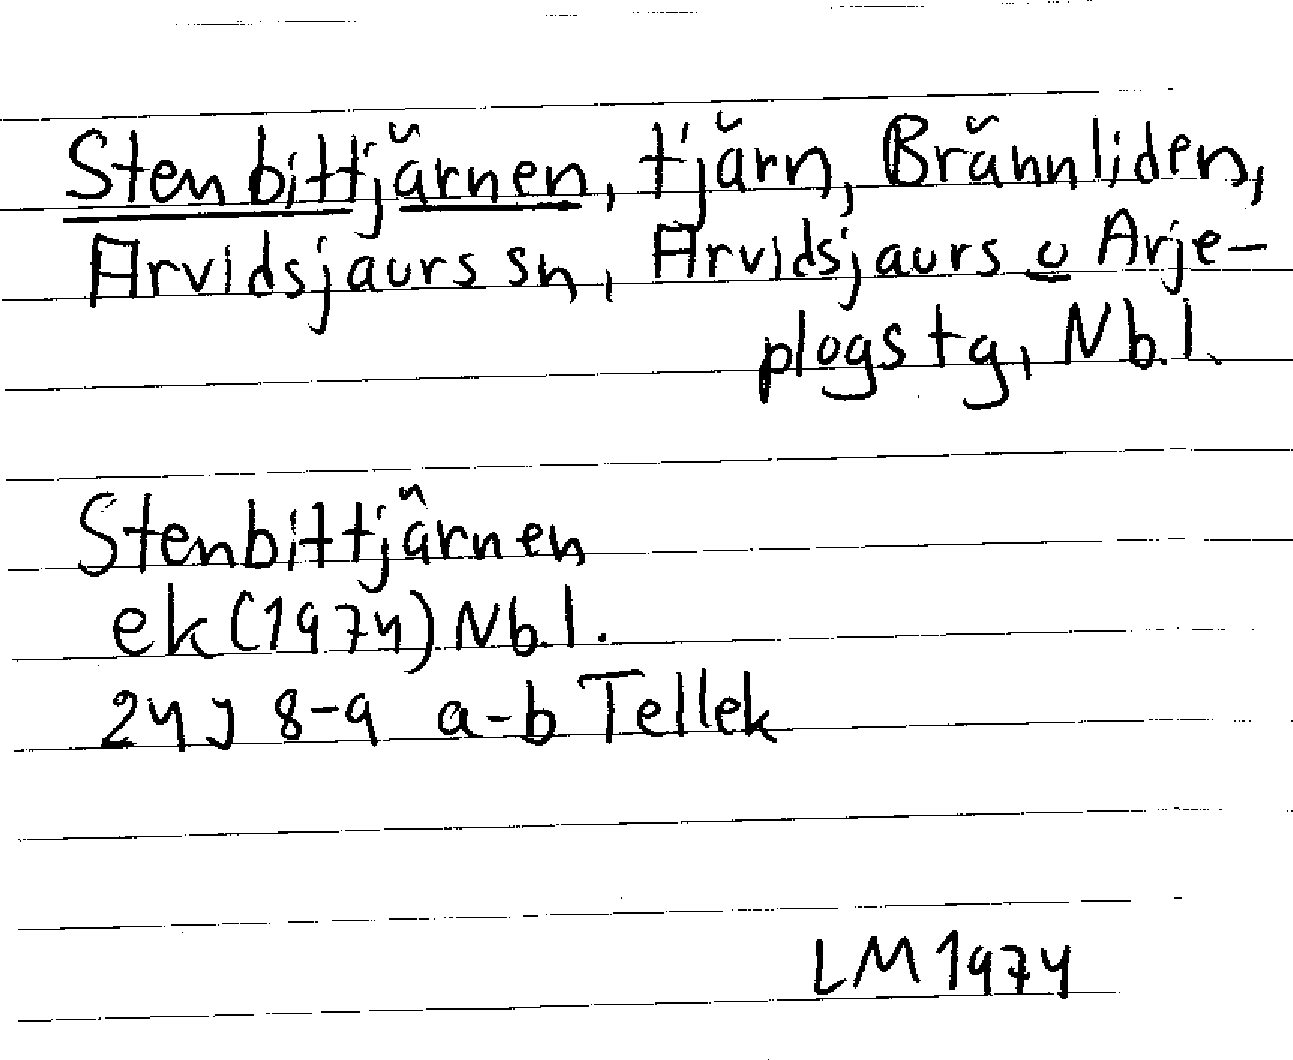 Stenbittjärnen, tjärn, Brännliden,
Arvidsjaurs sn, Arvidsjaurs o Arje-
plogs tg, Nb.l.
Stenbittjärnen
ek (1974) Nb.l.
24 J 8-9 a-b Tellek
LM 1974